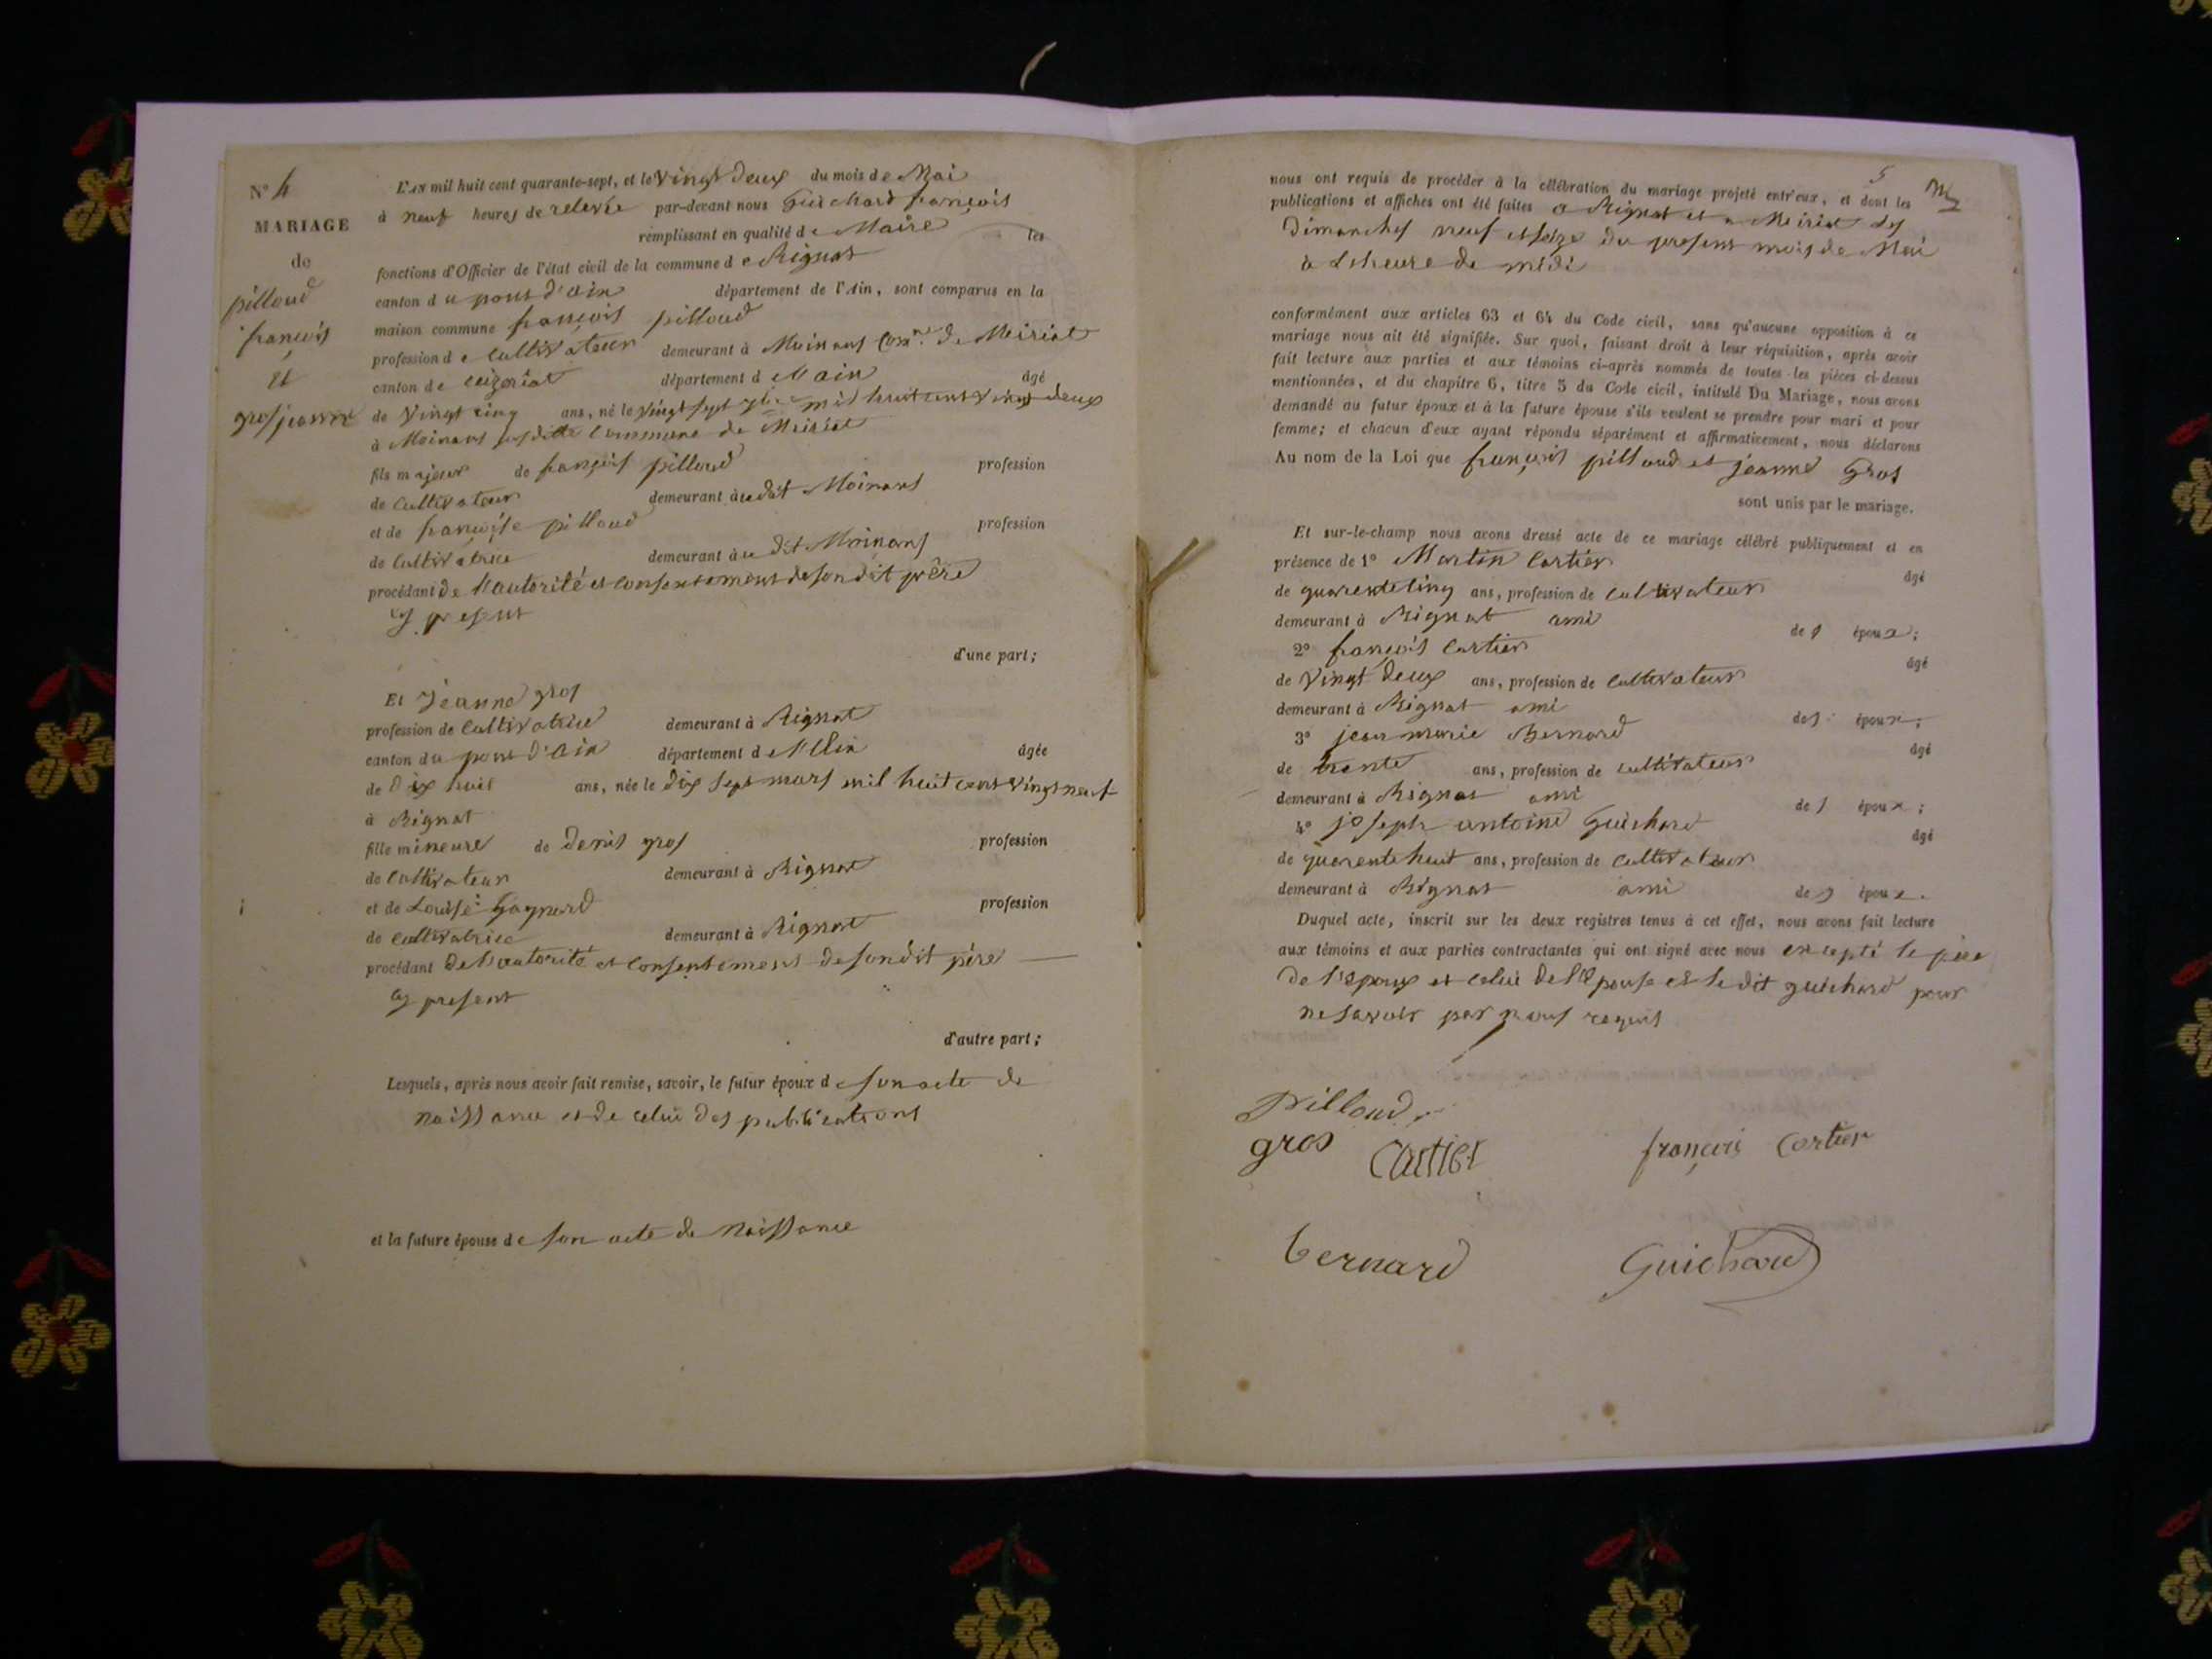 N° 4
MARIAGE
de
pilloud
françois
et
gros jeanne
L'AN mil huit cent quarante-sept, et le vingt deux du mois de Mai
à neuf heures de relevée par-devant nous Guichard françois
remplissant en qualité de Maire les
fonctions d'Officier de l'état civil de la commune de Rignat
canton du pont d'ain département de l'Ain, sont comparus en la
maison commune françois pilloud
profession de Cultivateur demeurant à Moinans Comne de Meiriat
canton de ceizeriat département de l'ain âgé
de vingt cinq ans, né le vingt sept 7bre mil huit cent vingt deux
à Moinans susditte Commune de Meiriat
fils majeur de françois pilloud profession
de Cultivateur demeurant à u dit Moinans
et de françoise pilloud profession
de Cultivatrice demeurant à u dit Moinans
procédant de l'autorité et consentement de son dit père
cy present
d'une part;
Et Jeanne gros
profession de Cultivatrice demeurant à Rignat
canton du pont d'Ain département de l'Ain âgée
de dix huit ans, née le dix sept mars mil huit cent vingt neuf
à Rignat
fille mineure de denis gros profession
de Cultivateur demeurant à Rignat
et de Louise gagnard profession
de Cultivatrice demeurant à Rignat
procédant de l'autorité et consentement de son dit père
cy present
d'autre part;
Lesquels, après nous avoir fait remise, savoir, le futur époux de son acte de
naissance et de celui des publications
et la future épouse de son acte de naissance
5
nous ont requis de procéder à la célébration du mariage projeté entr'eux, et dont les
publications et affiches ont été faites a Rignat et a Meiriat les
dimanches neuf et seize du present mois de Mai
à L'heure de midi
conformément aux articles 63 et 64 du Code civil, sans qu'aucune opposition à ce
mariage nous ait été signifiée. Sur quoi, faisant droit à leur réquisition, après avoir
fait lecture aux parties et aux témoins ci-après nommés de toutes les pièces ci-dessus
mentionnées, et du chapitre 6, titre 5 du Code civil, intitulé Du Mariage, nous avons
demandé au futur époux et à la future épouse s'ils veulent se prendre pour mari et pour
femme; et chacun d'eux ayant répondu séparément et affirmativement, nous déclarons
Au nom de la Loi que françois pilloud et jeanne Gros
sont unis par le mariage.
Et sur-le-champ nous avons dressé acte de ce mariage célébré publiquement et en
présence de 1° Martin Cartier âgé
de quarente cinq ans, profession de Cultivateur
demeurant à Rignat ami des époux;
2° françois Cartier âgé
de vingt deux ans, profession de Cultivateur
demeurant à Rignat ami des époux;
3° jean marie Bernard âgé
de trente ans, profession de Cultivateur
demeurant à Rignat ami des époux;
4° joseph antoine Guichard âgé
de quarente huit ans, profession de Cultivateur
demeurant à Rignat ami des époux.
Duquel acte, inscrit sur les deux registres tenus à cet effet, nous avons fait lecture
aux témoins et aux parties contractantes qui ont signé avec nous excepté le père
de l'epoux et celui de l'epouse et le dit guichard pour
ne savoir par nous requis
Pilloud
gros Cartier françois Cartier
bernard Guichard